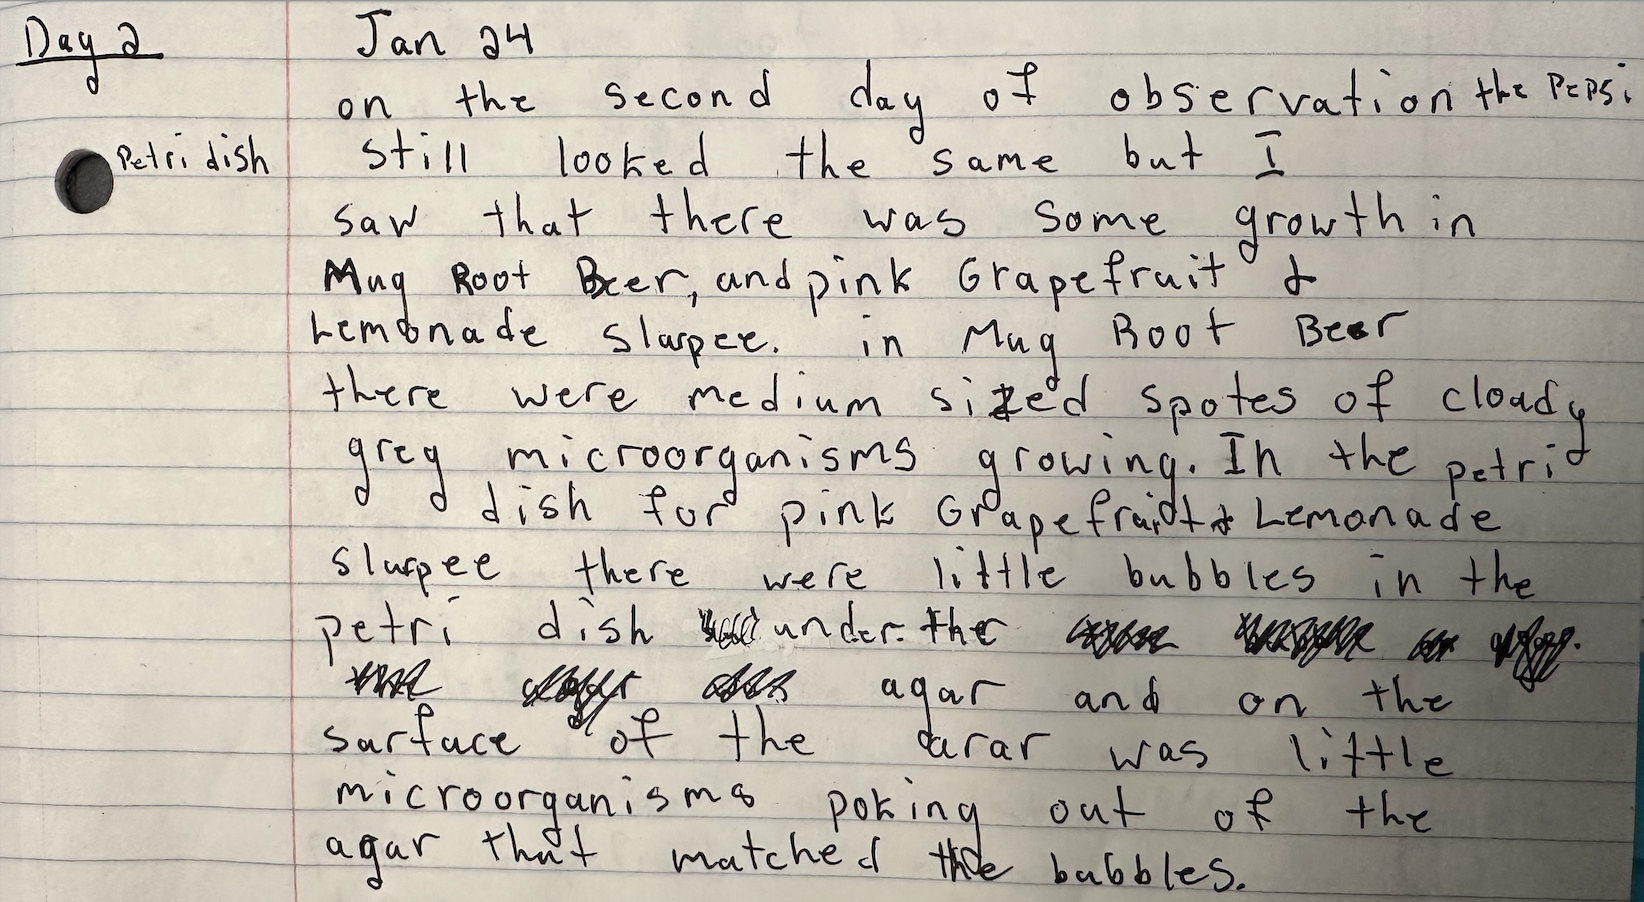 Day 2
Jan 24
on the second day of observation the Pepsi
Petri dish
still looked the same but I
saw that there was some growth in
Mug Root Beer, and pink Grapefruit &
Lemonade slurpee. in Mug Root Beer
there were medium sized spotes of cloudy
grey microorganisms growing. In the petri
dish for pink Grapefruit & Lemonade
slurpee there were little bubbles in the
petri dish under the
agar and on the
surface of the arar was little
microorganisms poking out of the
agar that matched the bubbles.